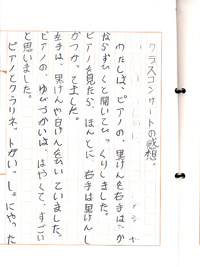 クラスコンサートの感想。
わたしは、ピアノの、黒けんを右手は
ならすひくと聞いてびっくりしました。
ピアノを見たら、ほんとに右手は黒けんし
かつかってました。
左手は、黒けんや白けんを使っていました。
ピアノの、ゆびづかいは、はやくて、すごい
と思いました。
ピアノとクラリネットがいっしょにやった